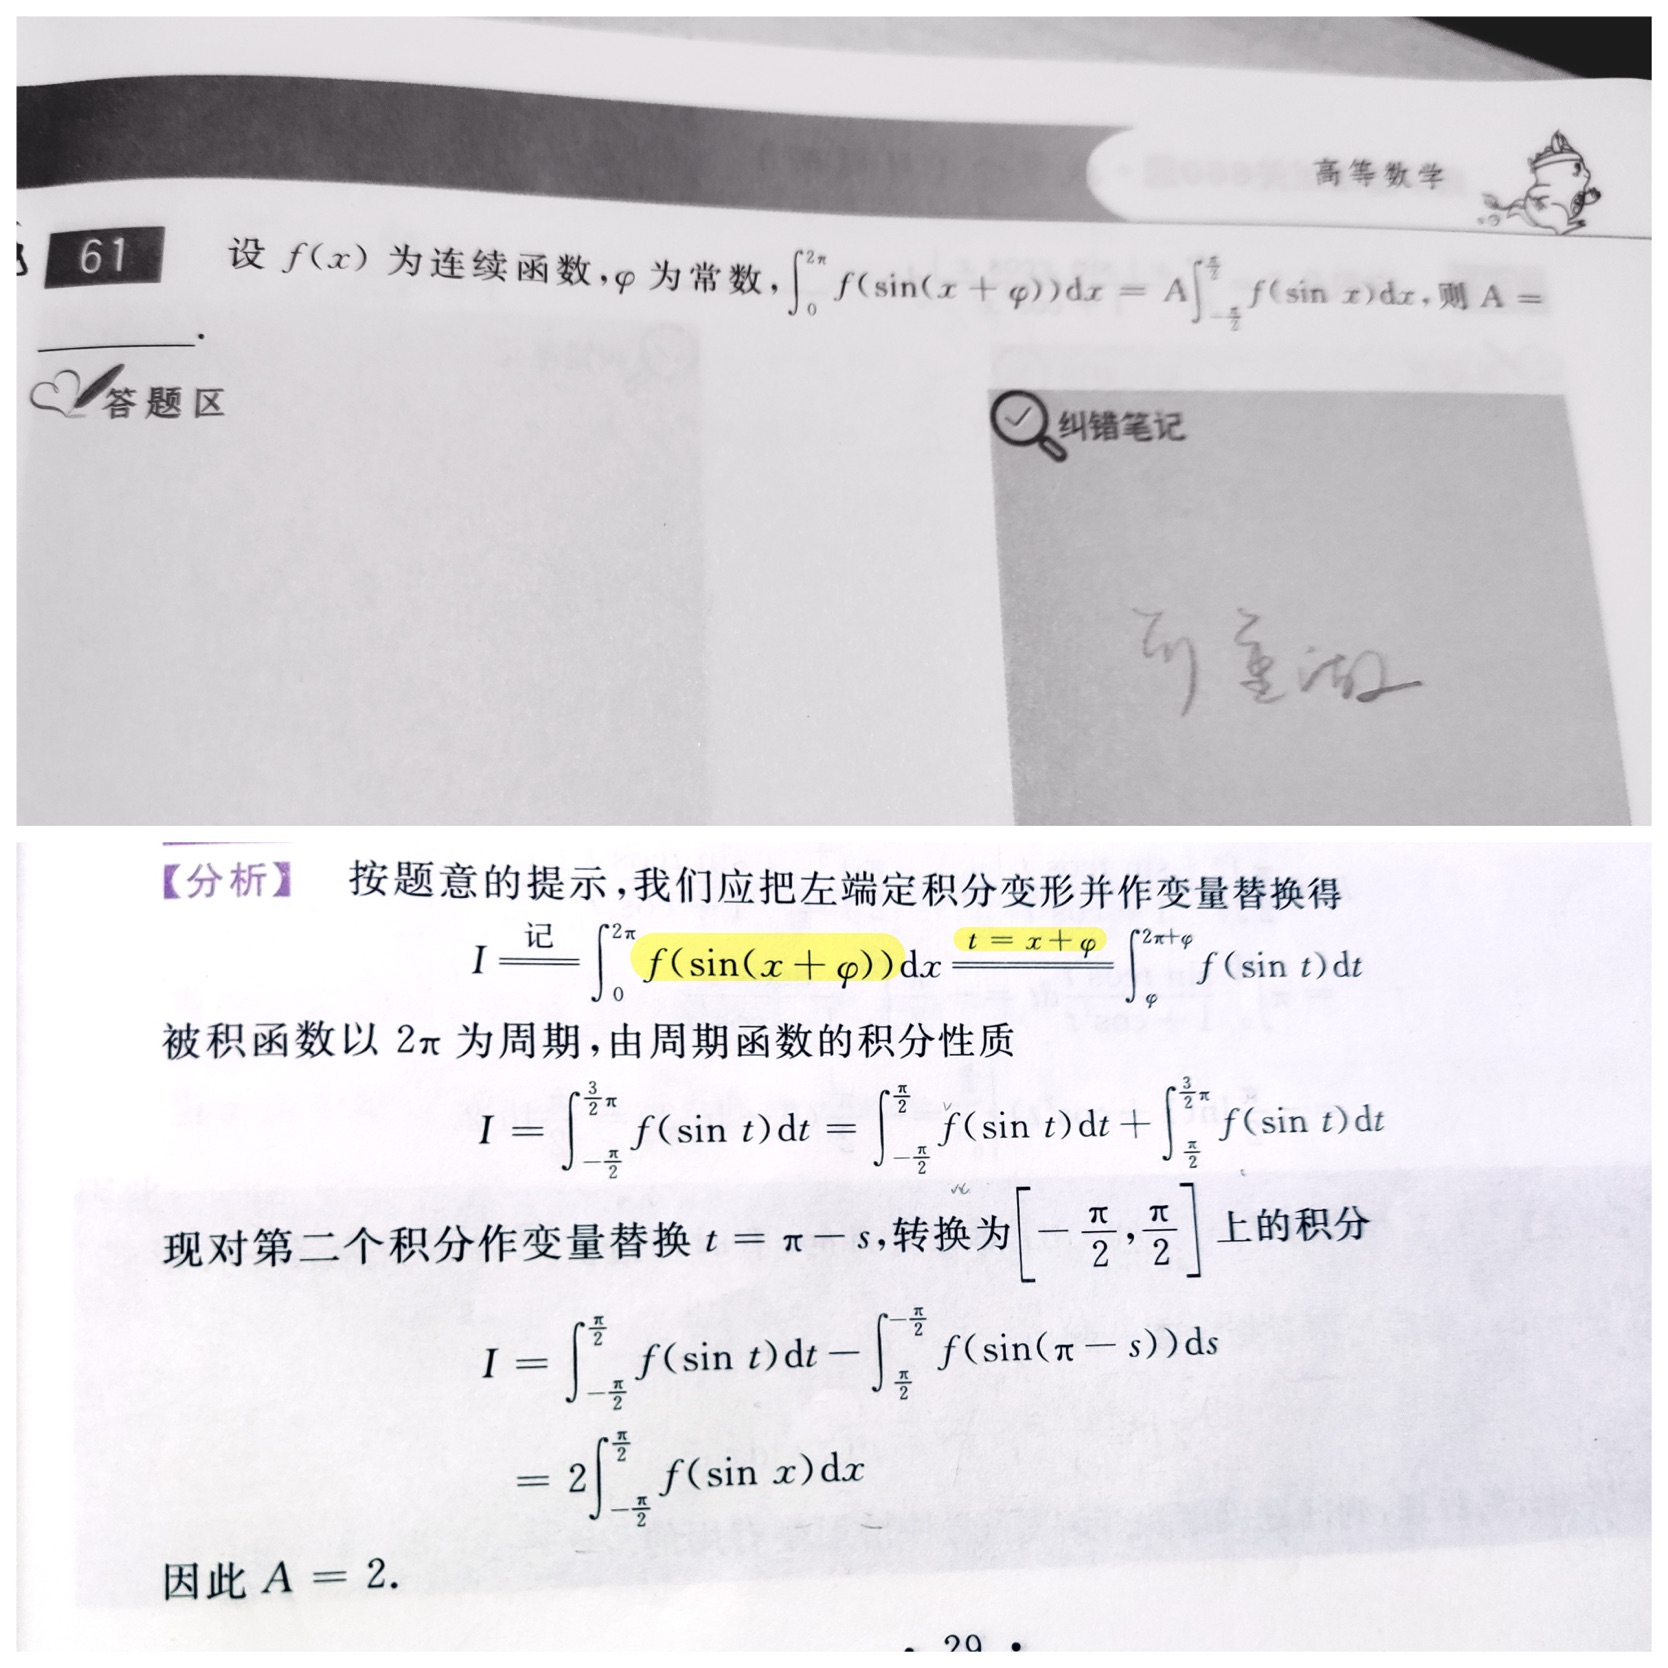 高等数学
61 设 f(x) 为连续函数,φ 为常数,∫₀^{2π} f(sin(x + φ))dx = A∫_{-π/2}^{π/2} f(sin x)dx,则 A =
______.
答题区
纠错笔记
重做
【分析】 按题意的提示,我们应把左端定积分变形并作变量替换得
I ≝(记) ∫₀^{2π} f(sin(x + φ))dx =(t = x + φ) ∫_φ^{2π+φ} f(sin t)dt
被积函数以 2π 为周期,由周期函数的积分性质
I = ∫_{-π/2}^{3/2 π} f(sin t)dt = ∫_{-π/2}^{π/2} f(sin t)dt + ∫_{π/2}^{3/2 π} f(sin t)dt
现对第二个积分作变量替换 t = π − s,转换为[−π/2, π/2]上的积分
I = ∫_{-π/2}^{π/2} f(sin t)dt − ∫_{π/2}^{-π/2} f(sin(π − s))ds
= 2∫_{-π/2}^{π/2} f(sin x)dx
因此 A = 2.
· 29 ·